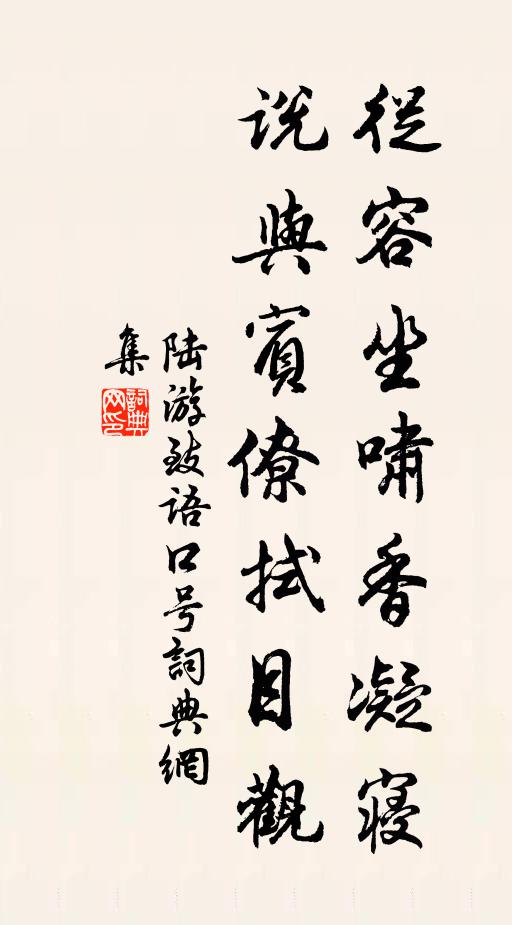 從容坐嘯香凝寢
説與賓僚拭目觀
陆游致语口号詞典網
集
詞典
网印